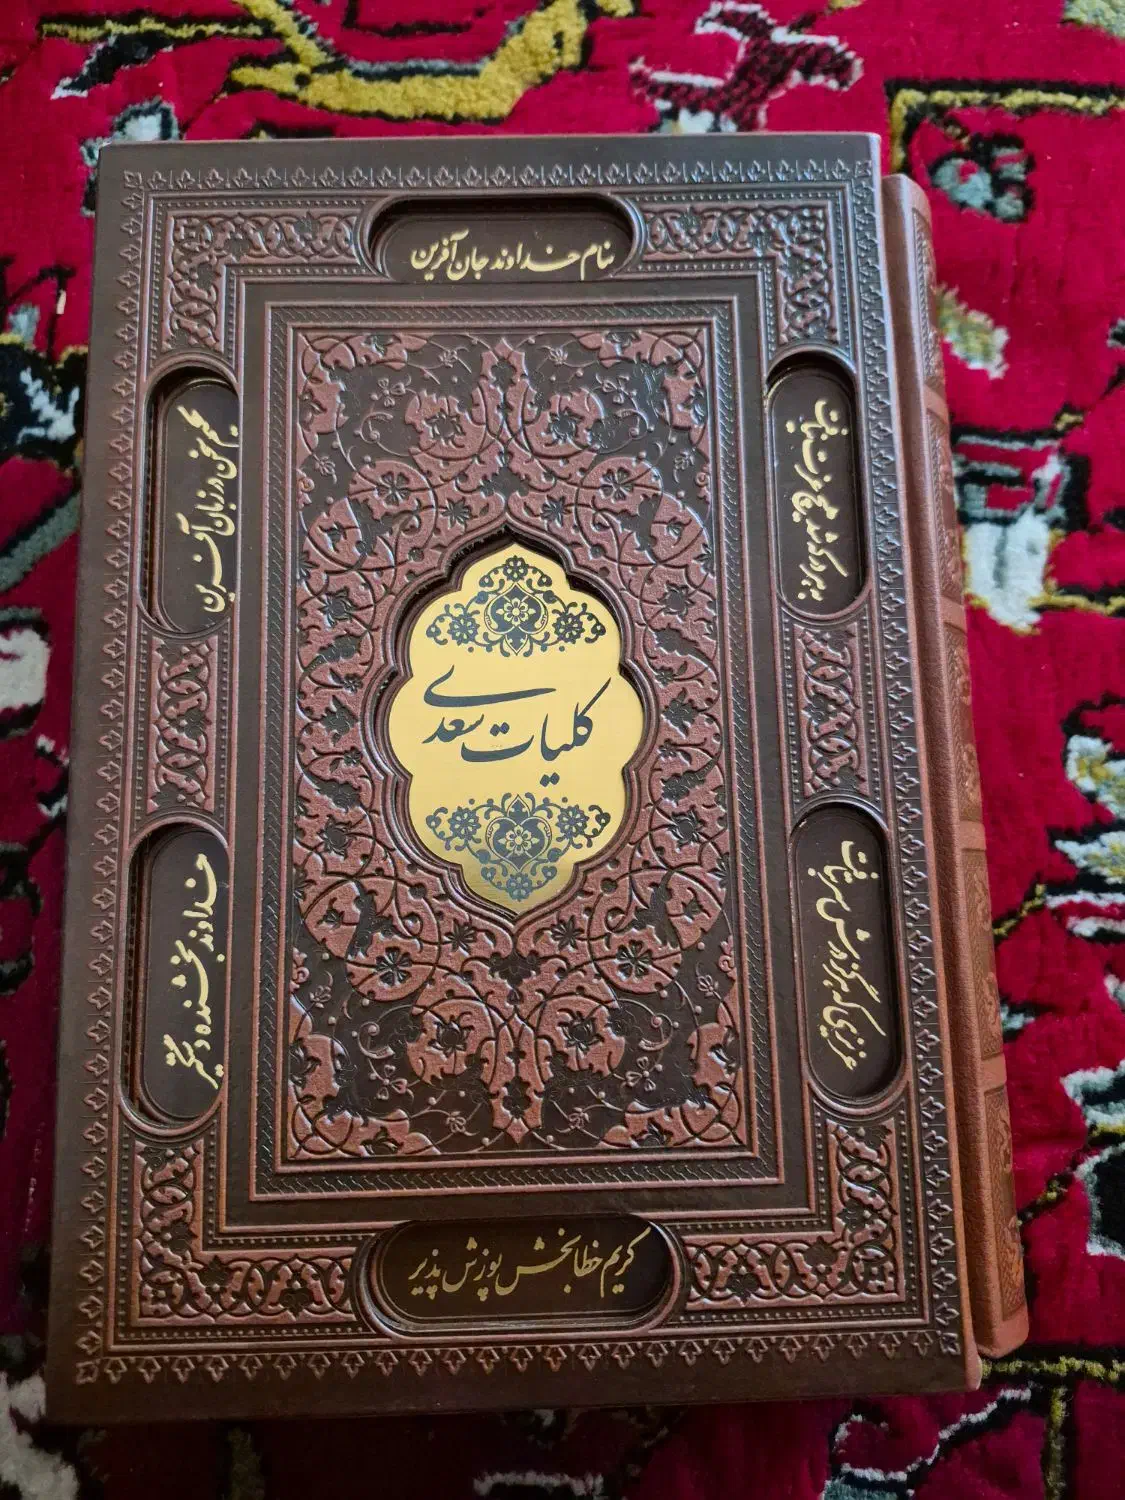 بنام خداوند جان آفرین
حکیم سخن در زبان آفرین
خداوند بخشندهٔ دستگیر
کریم خطا بخش پوزش پذیر
عزیزی که هر کز درش سر بتافت
بهر در که شد هیچ عزت نیافت
کلیات سعدی